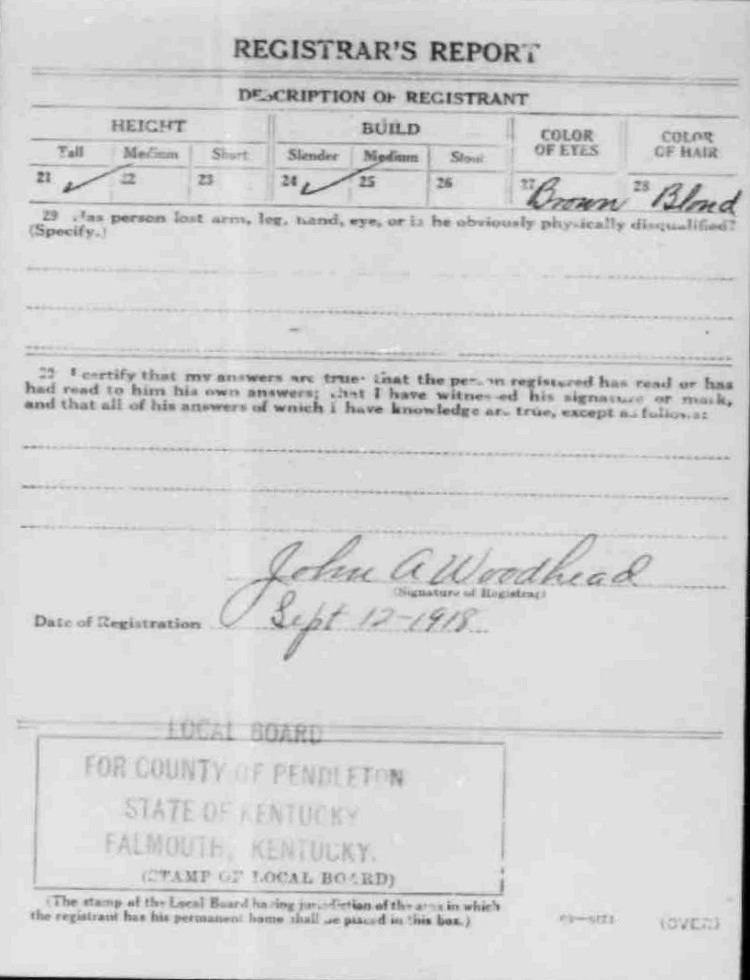 REGISTRAR'S REPORT
DESCRIPTION OF REGISTRANT
HEIGHT BUILD COLOR OF EYES COLOR OF HAIR
Tall Medium Short Slender Medium Stout
21 ✓ 22 23 24 ✓ 25 26 27 Brown 28 Blond
29 Has person lost arm, leg, hand, eye, or is he obviously physically disqualified?
(Specify.)
I certify that my answers are true; that the person registered has read or has
had read to him his own answers; that I have witnessed his signature or mark,
and that all of his answers of which I have knowledge are true, except as follows:
John A Woodhead
(Signature of Registrar)
Date of Registration Sept 12-1918
LOCAL BOARD
FOR COUNTY OF PENDLETON
STATE OF KENTUCKY
FALMOUTH, KENTUCKY.
(STAMP OF LOCAL BOARD)
(The stamp of the Local Board having jurisdiction of the area in which
the registrant has his permanent home shall be placed in this box.)
(OVER)